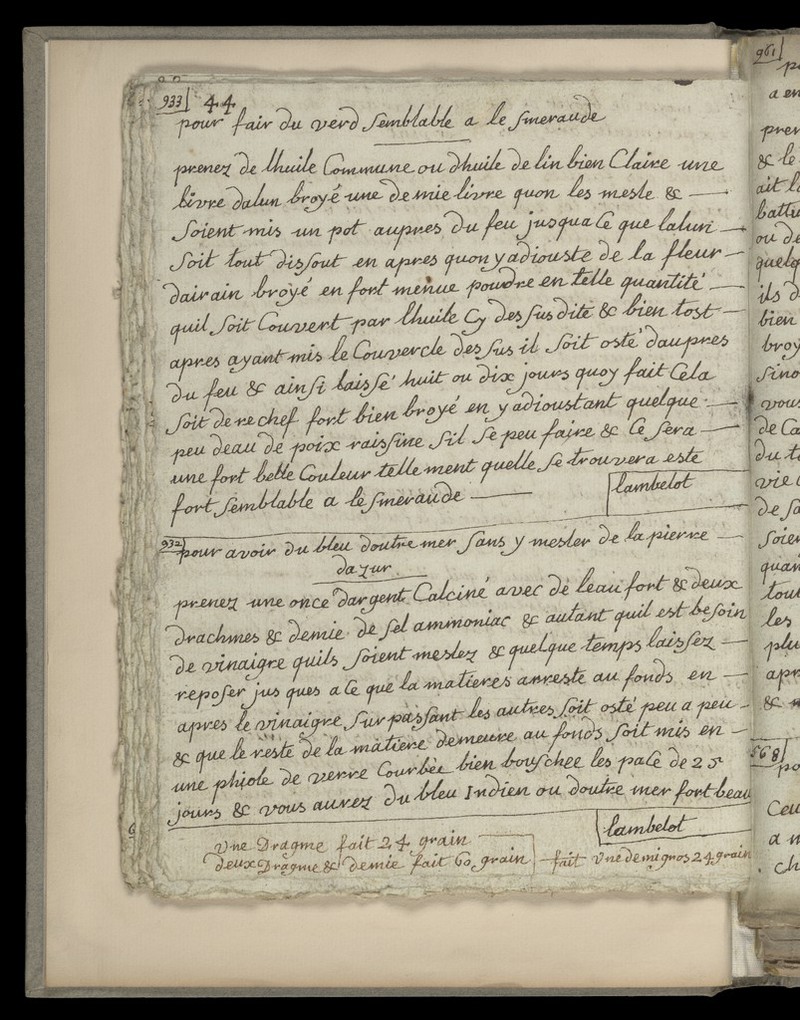 933 44
pour fair du verd semblable a lesmeraude
prenez de lhuile Commune ou dhuile de lin bien Claire une
livre dalun broyé une demie livre quon les mesle &
soient mis un pot aupres du feu jusqua Ce que lalun
soit tout dissout en apres quon y adiouste de la fleur
dairain broyé en fort menue poudre en telle quantité
quil soit Couvert par lhuile Cy dessus dite & bien tost
apres ayant mis le Couvercle dessus il soit osté daupres
du feu & ainsi laissé huit ou dix jours quoy fait Cela
soit derechef fort bien broyé en y adioustant quelque
peu deau de poix raissine sil se peu faire & Ce sera
une fort belle Couleur tellement quelle se trouvera este
fort semblable a lesmeraude
lambelot
932 pour avoir du bleu doutre mer sans y mesler de la pierre
dazur
prenez une once dargent Calciné avec de leau fort & deux
drachmes & demie de sel ammoniac & autant quil est besoin
de vinaigre quils soient meslez & quelque temps laissez
reposer jus ques a Ce que la matieres arreste au fonds en
apres le vinaigre surpassant les autres soit osté peu a peu
& que le reste de la matiere demeure au fonds soit mis en
une phiole de verre Courbée bien bouschee les pace de 25
jours & vous aurez du bleu Indien ou doutre mer fort beau
lambelot
une Dragme fait 24 grain
deux Dragme & demie fait 60 grain fait une demi gros 24 grain
961
a en
pren
& le
ait l
battu
ou de
quelq
ils d
bien
broy
sino
vous
de Ca
du t
vie
de sa
soien
quan
tout
les
plu
apr
&
568
po
Ceu
a
ch